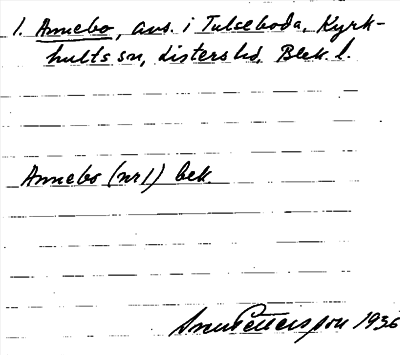 1. Annebo, avs. i Tulseboda, Kyrk-
hults sn, Listers hd, Blek. l.
Annebo (nr 1) bek.
Pettersson 1936